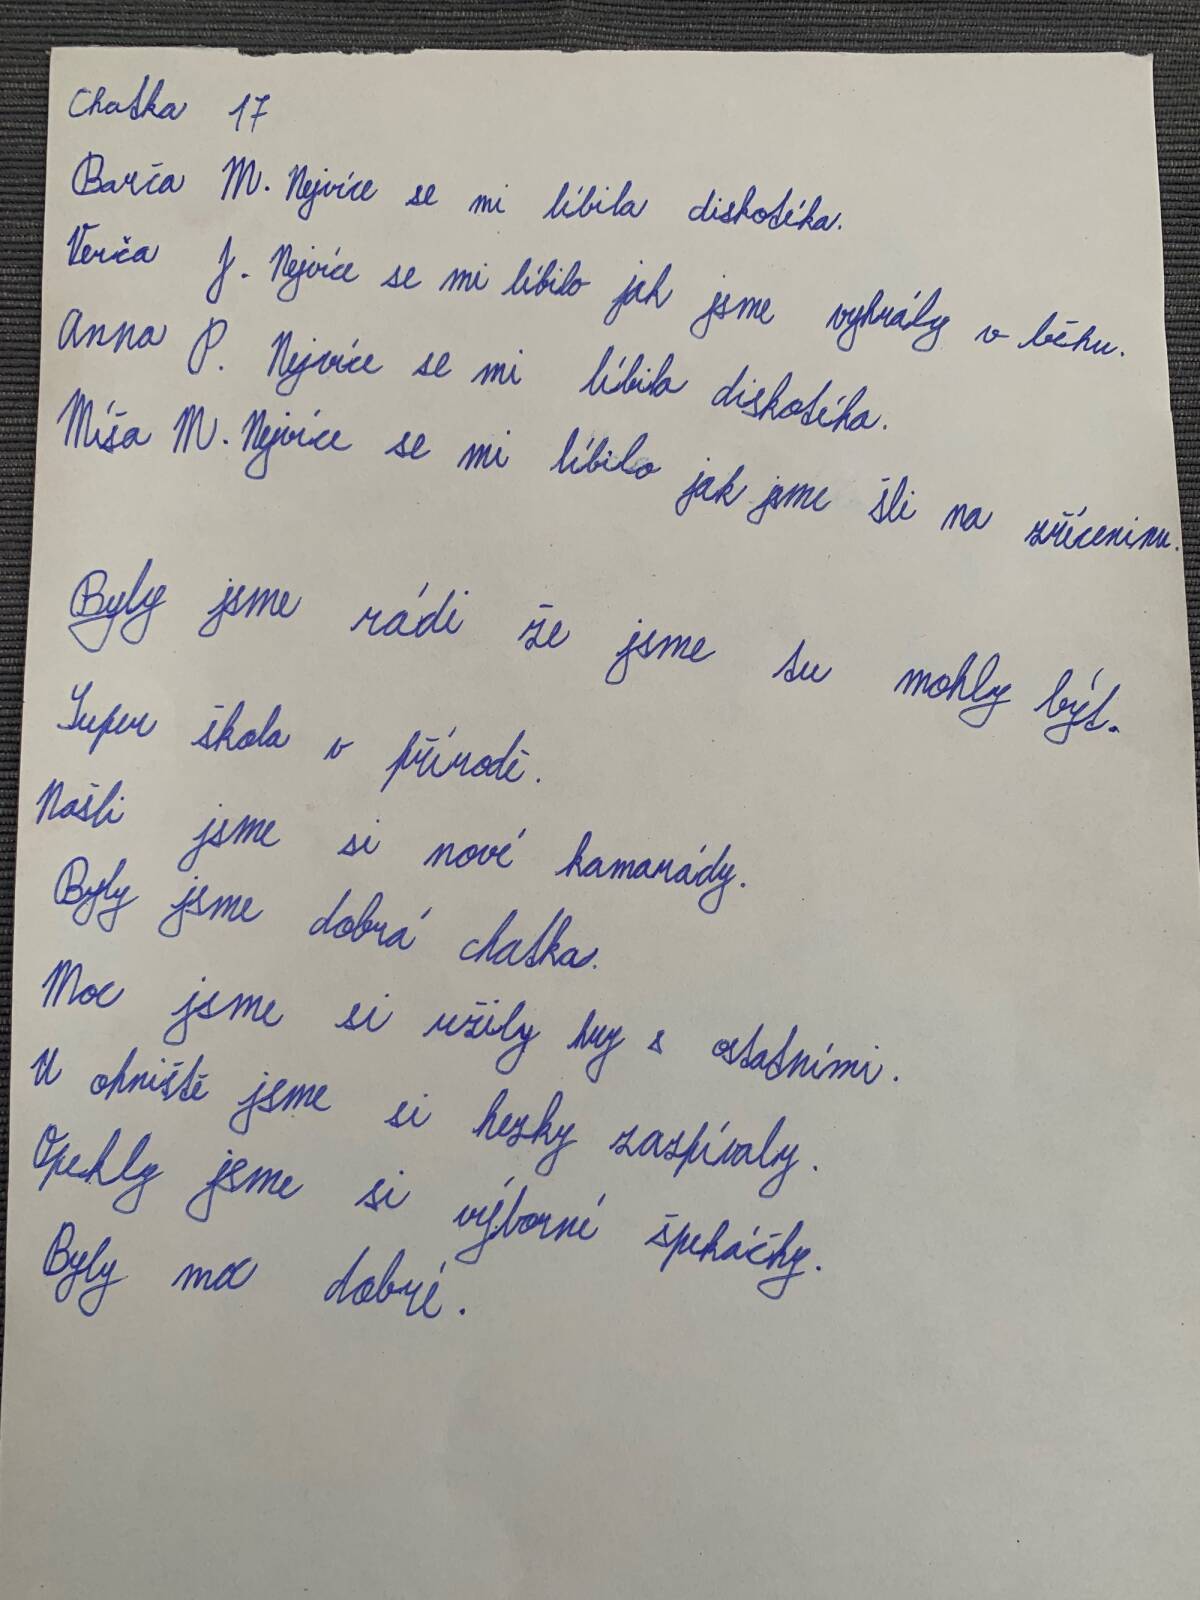 Chatka 17
Barča M. Nejvíce se mi líbila diskotéka.
Verča J. Nejvíce se mi líbilo jak jsme vyhrály v běhu.
Anna P. Nejvíce se mi líbila diskotéka.
Míša M. Nejvíce se mi líbilo jak jsme šli na zříceninu.
Byly jsme rádi že jsme tu mohly být.
Super škola v přírodě.
Našli jsme si nové kamarády.
Byly jsme dobrá chatka.
Moc jsme si užily hry s ostatními.
U ohniště jsme si hezky zazpívaly.
Opekly jsme si výborné špekáčky.
Byly moc dobré.